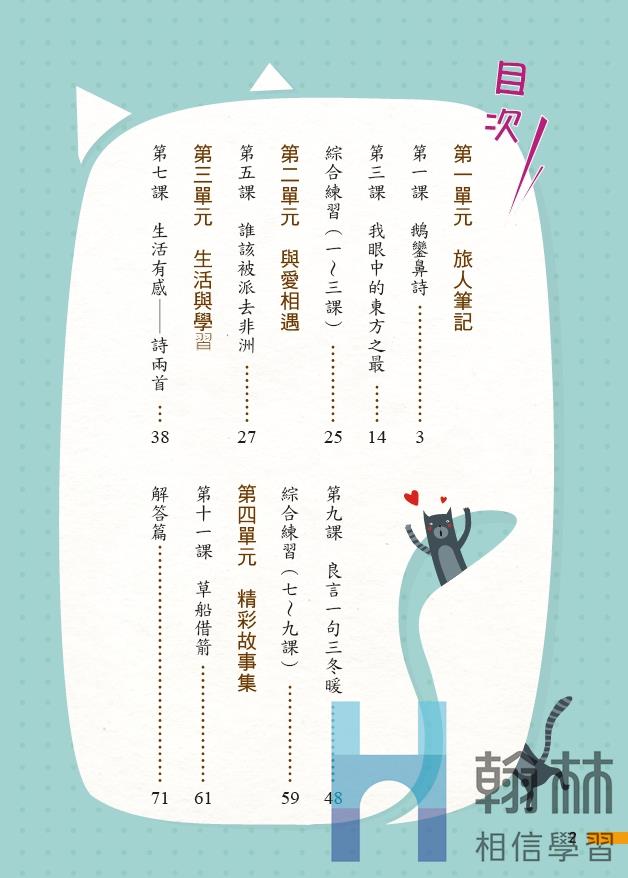 目次
第一單元　旅人筆記
第一課　鵝鑾鼻詩…………………3
第三課　我眼中的東方之最……14
綜合練習（一～三課）…………25
第二單元　與愛相遇
第五課　誰該被派去非洲………27
第三單元　生活與學習
第七課　生活有感——詩兩首…38
第九課　良言一句三冬暖…………48
綜合練習（七～九課）……………59
第四單元　精彩故事集
第十一課　草船借箭………………61
解答篇………………………………71
翰林
相信學習
2